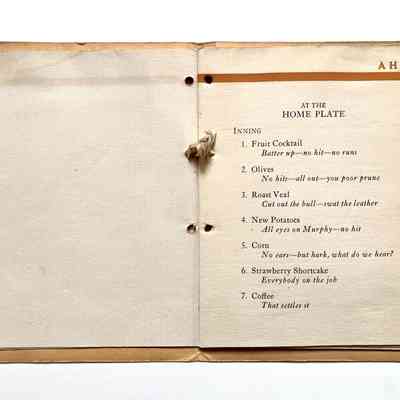 A H
AT THE
HOME PLATE
INNING
1. Fruit Cocktail
Batter up—no hit—no runs
2. Olives
No hits—all out—you poor prune
3. Roast Veal
Cut out the bull—swat the leather
4. New Potatoes
All eyes on Murphy—no hit
5. Corn
No ears—but hark, what do we hear?
6. Strawberry Shortcake
Everybody on the job
7. Coffee
That settles it